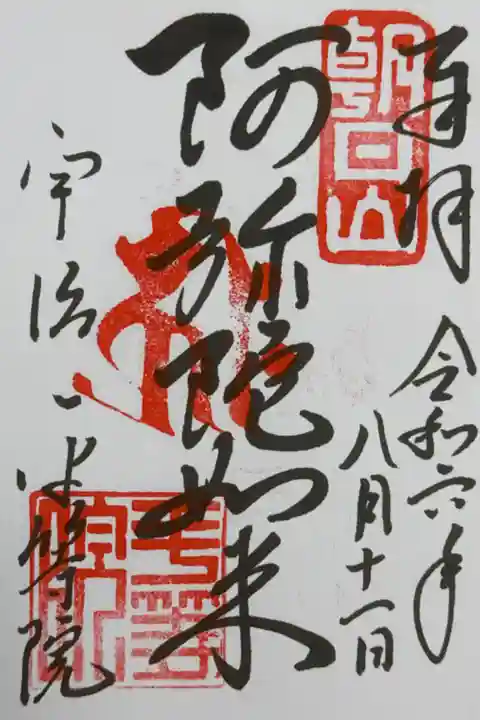 奉拝
朝日山
令和六年
八月十一日
阿弥陀如来
宇治 平等院
平等院印